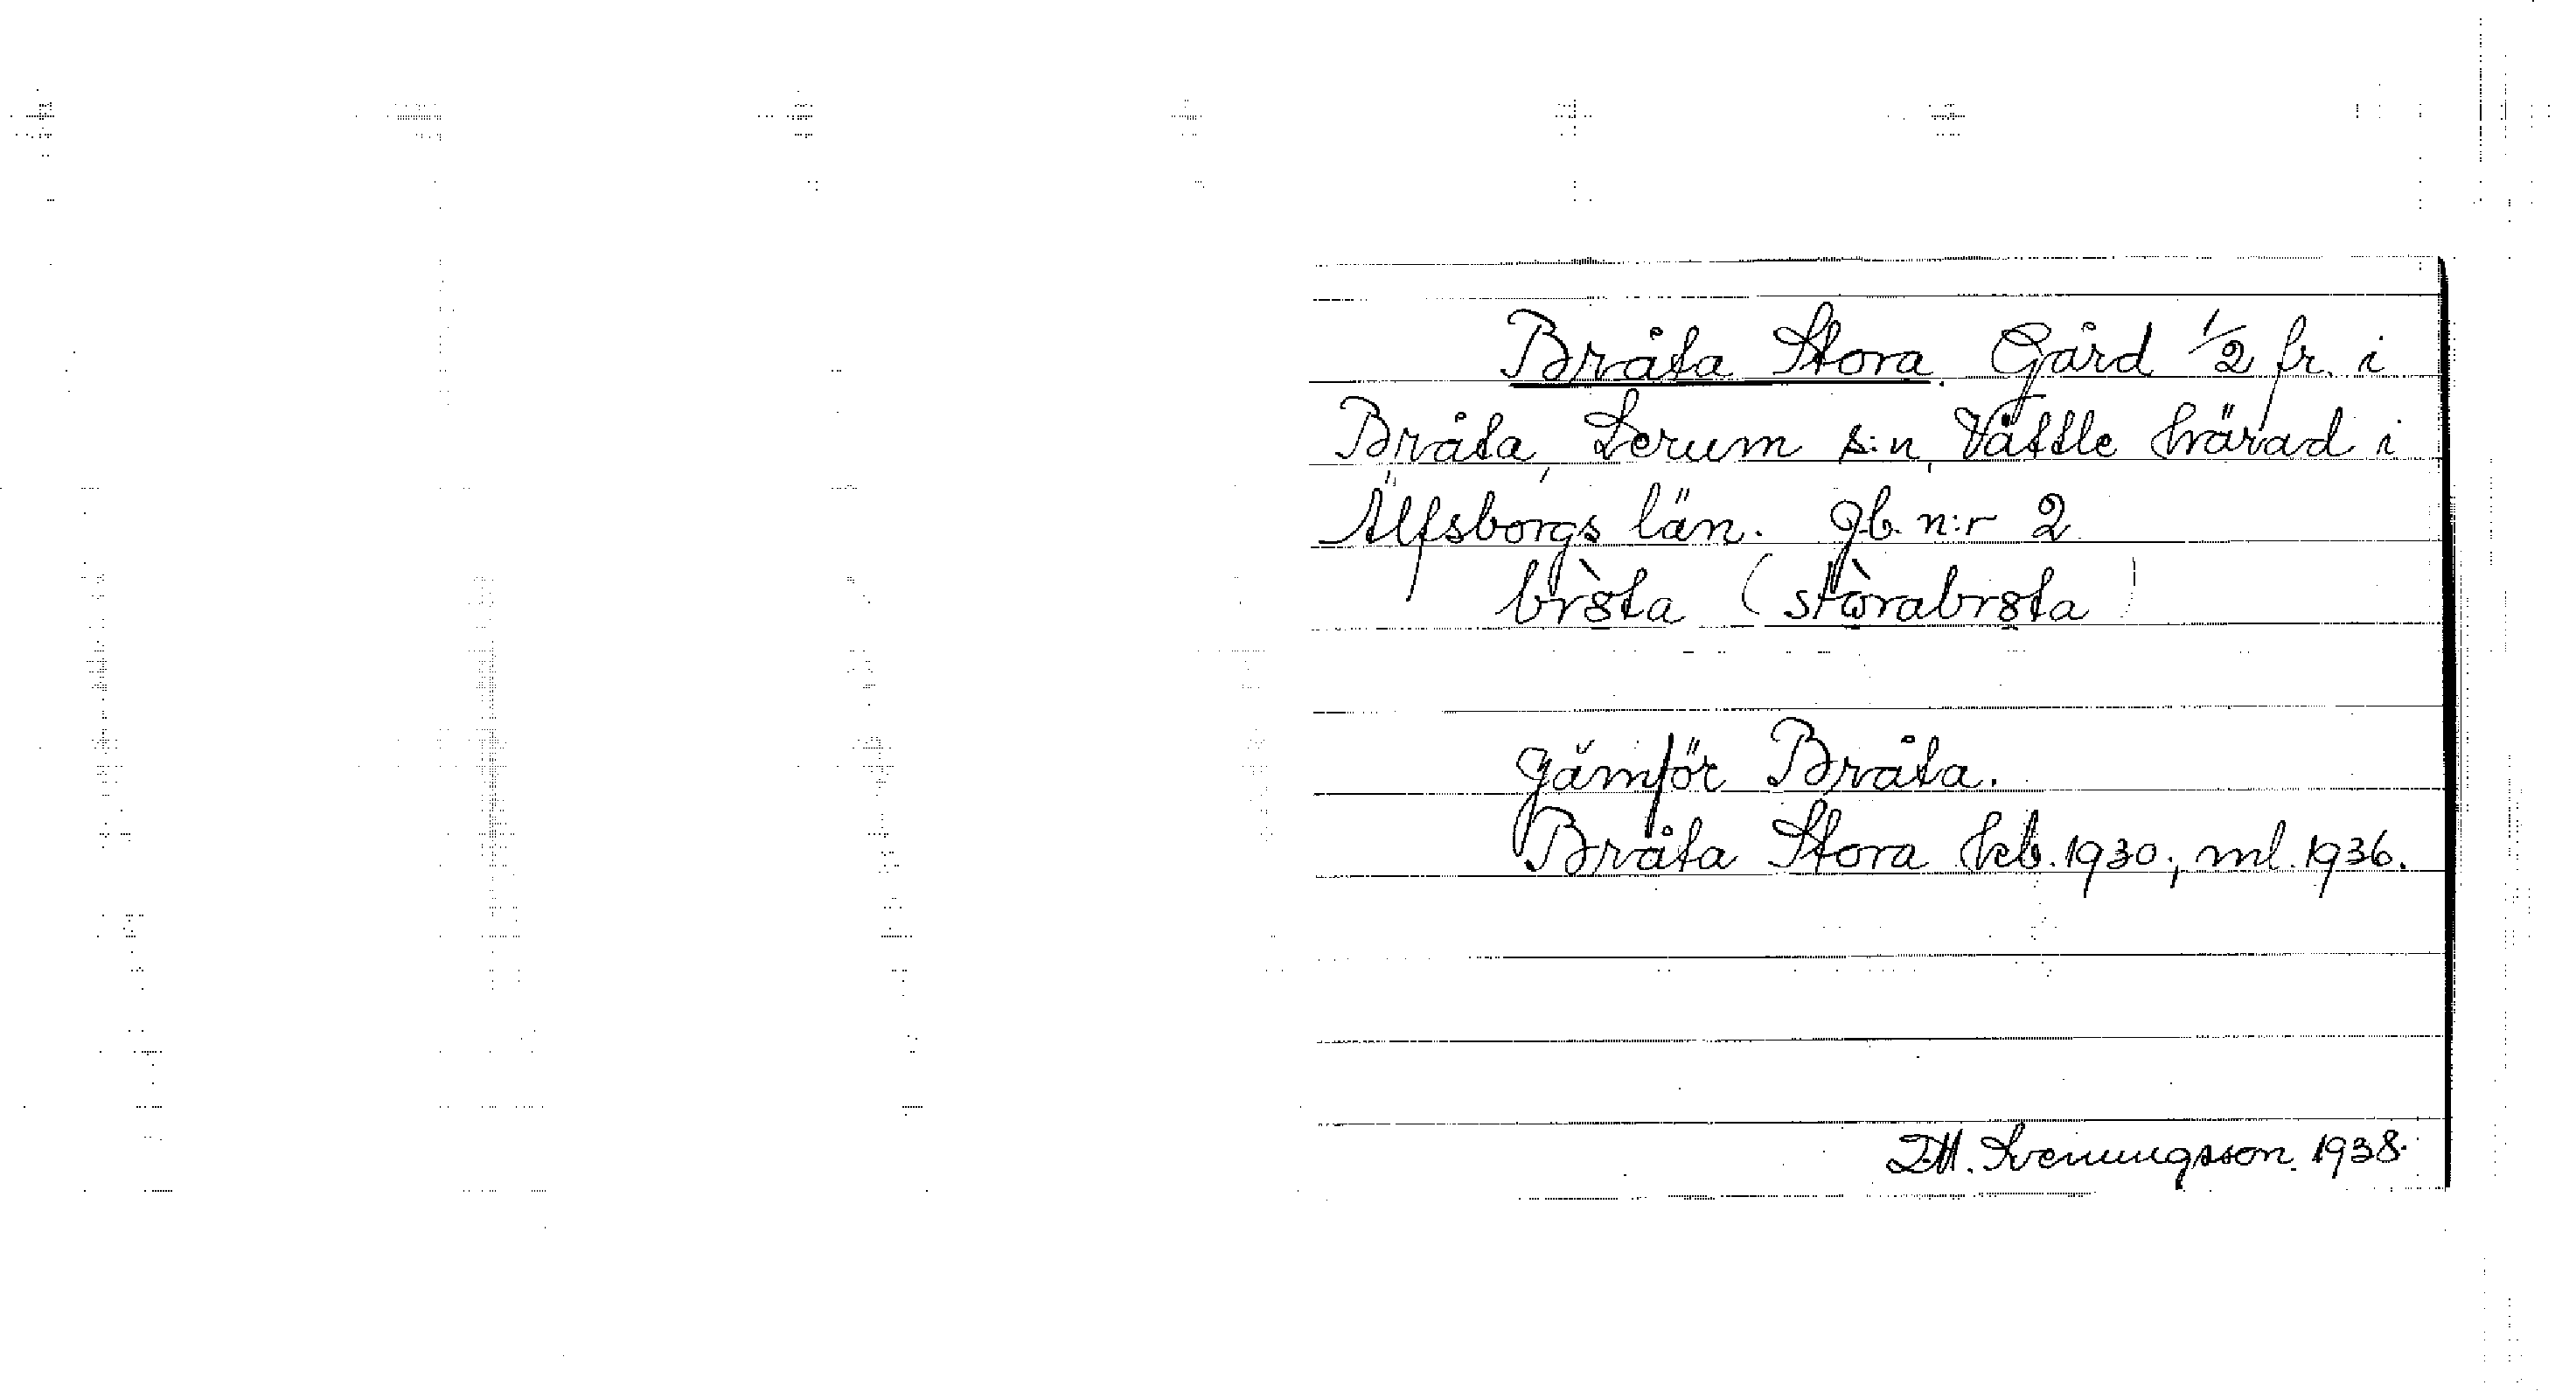 Bråta Stora. Gård 1/2 fr. i
Bråta, Lerum s:n, Vättle härad i
Älfsborgs län. gb. n:r 2
br8̀ta (stòrabr8ta)
Jämför Bråta.
Bråta Stora hkb. 1930; ml. 1936.
Svenungsson. 1938.